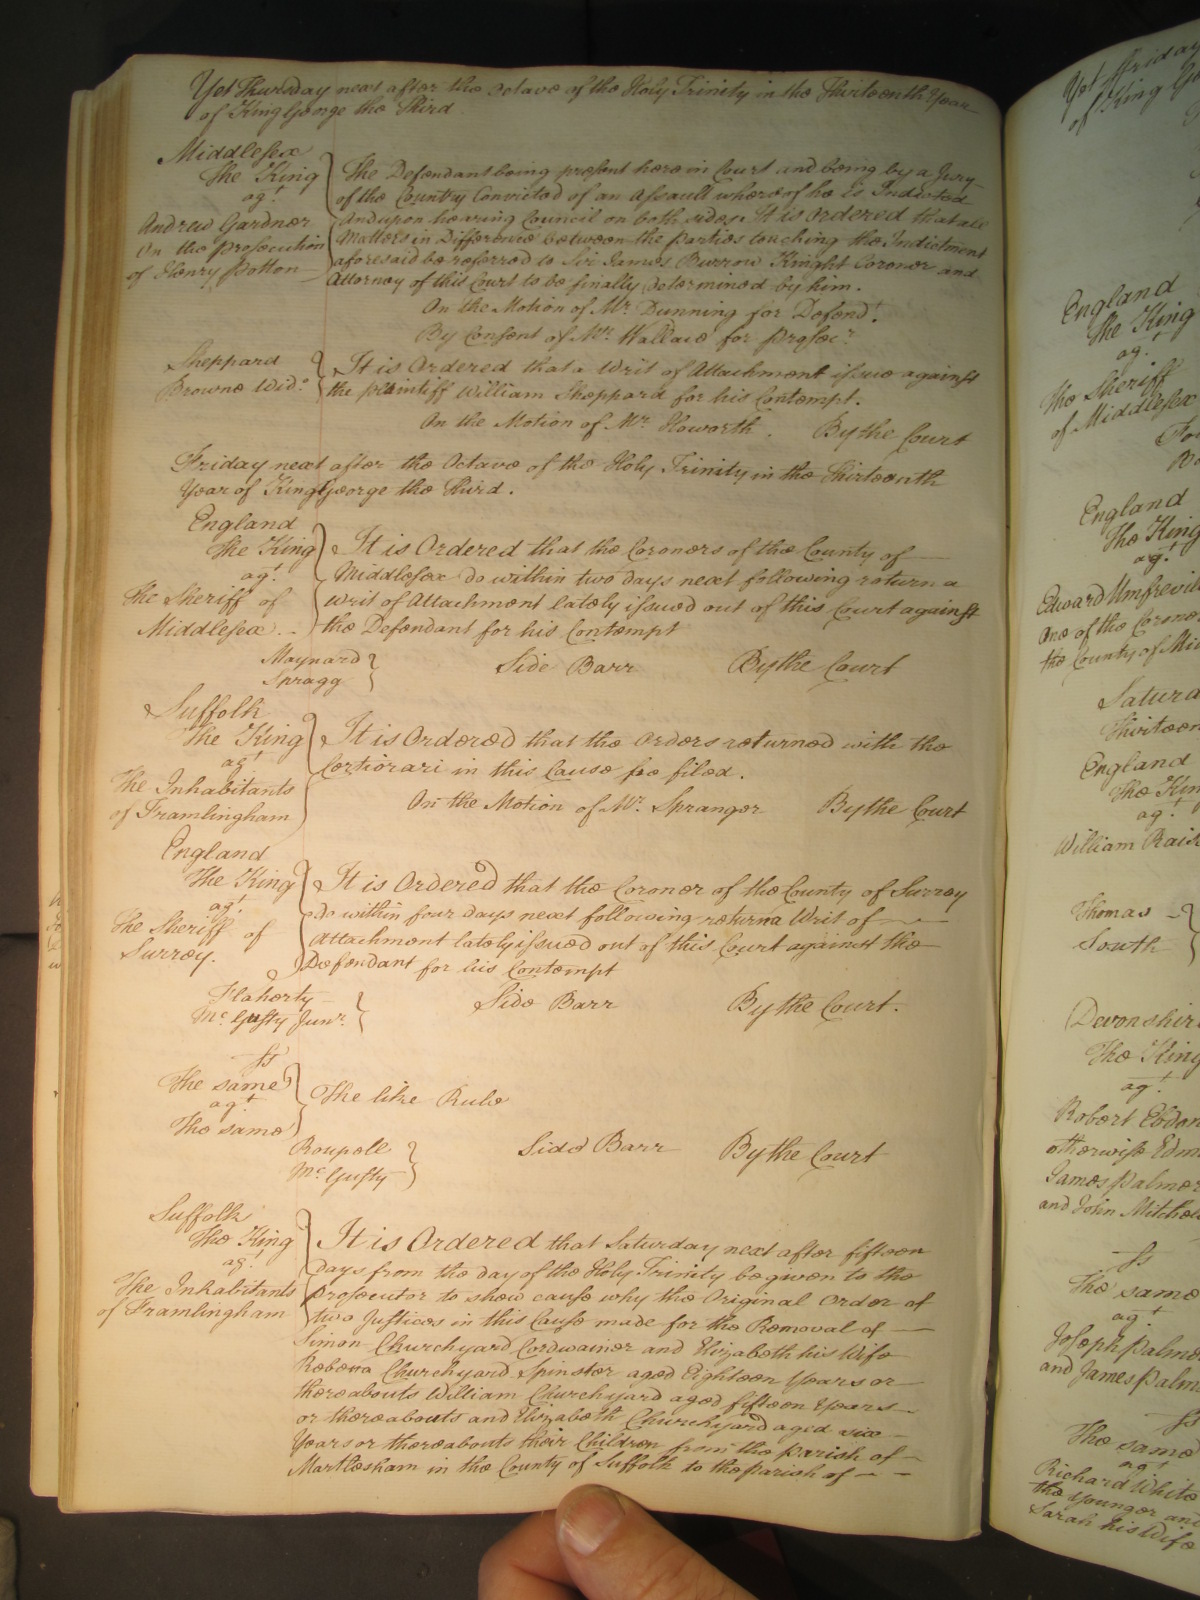 Yet Thursday next after the octave of the Holy Trinity in the Thirteenth Year
of King George the Third
Middlesex
The King
agt
Andrew Gardner
on the prosecution
of Henry Potton
The Defendant being present here in Court and being by a Jury
of the Country Convicted of an Assault whereof he is Indicted
And upon hearing Council on both sides It is Ordered that all
Matters in Difference between the parties touching the Indictment
aforesaid be referred to Sir James Burrow Knight Coroner and
Attorney of this Court to be finally determined by him.
On the Motion of Mr. Dunning for Defendt.
By Consent of Mr. Wallace for Prosecr.
Sheppard
Browne Wido.
It is Ordered that a Writ of Attachment issue against
the plaintiff William Sheppard for his Contempt.
On the Motion of Mr. Howorth. By the Court
Friday next after the Octave of the Holy Trinity in the Thirteenth
Year of King George the Third.
England
The King
agt.
The Sheriff of
Middlesex
It is Ordered that the Coroners of the County of
Middlesex do within two days next following return a
Writ of Attachment lately issued out of this Court against
the Defendant for his Contempt
Maynard
Spragg
Side Barr By the Court
Suffolk
The King
agt.
The Inhabitants
of Framlingham
It is Ordered that the Orders returned with the
Certiorari in this Cause be filed.
On the Motion of Mr. Spranger By the Court
England
The King
agt.
The Sheriff of
Surrey.
It is Ordered that the Coroner of the County of Surrey
do within four days next following return a Writ of
Attachment lately issued out of this Court against the
Defendant for his Contempt
Flaherty
Mc. Gusty Junr.
Side Barr By the Court.
Ss
The same
agt.
The same
The like Rule
Roupell
Mc. Gusty
Side Barr By the Court
Suffolk
The King
agt.
The Inhabitants
of Framlingham
It is Ordered that Saturday next after fifteen
days from the day of the Holy Trinity be given to the
prosecutor to shew cause why the Original Order of
two Justices in this Cause made for the Removal of
Simon Churchyard Cordwainer and Elizabeth his Wife
Rebecca Churchyard Spinster aged Eighteen Years or
thereabouts William Churchyard aged fifteen Years
or thereabouts and Elizabeth Churchyard aged six
Years or thereabouts their Children from the parish of
Martlesham in the County of Suffolk to the parish of
Yet Friday
of King G
England
The King
agt.
The Sheriff
of Middlesex
England
The King
agt.
Edward Umfrevil
One of the Corone
the County of Mid
Satura
Thirteen
England
The Kin
agt.
William
Thomas
South
Devonshir
The King
agt.
Robert Ebdon
otherwise Edm
James Palmer
and John Mitchel
Ss
The same
agt
Joseph Palmer
and James Palm
Ss
The same
agt
Richard White
the Younger and
Sarah his Wife